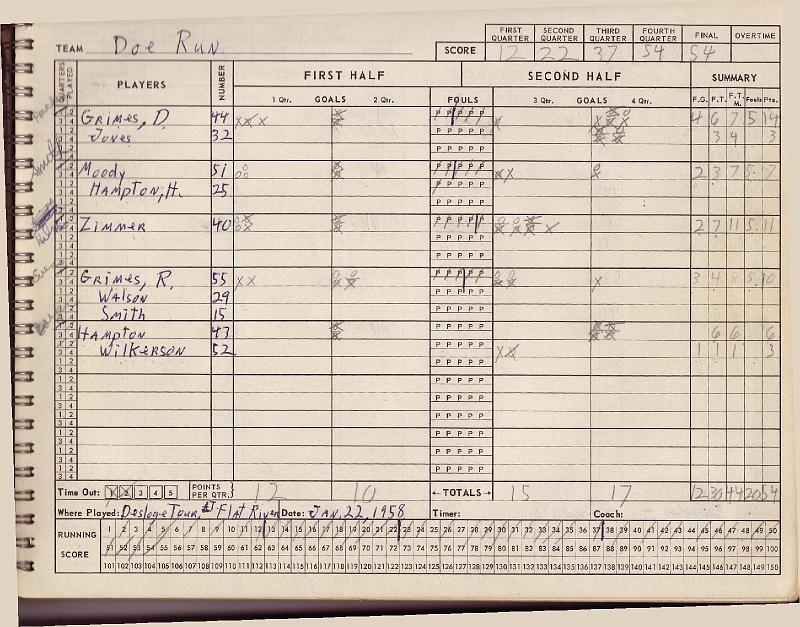 TEAM Doe Run
SCORE
FIRST QUARTER 12 SECOND QUARTER 22 THIRD QUARTER 37 FOURTH QUARTER 54 FINAL 54 OVERTIME
QUARTERS PLAYED PLAYERS NUMBER FIRST HALF SECOND HALF SUMMARY
1 Qtr. GOALS 2 Qtr. FOULS 3 Qtr. GOALS 4 Qtr. F.G. F.T. F.T.M. Fouls Pts.
Grimes, D. 44 4 6 7 5 14
Jones 32 3 4 3
Moody 51 2 3 7 5 7
Hampton, H. 25
Zimmer 40 2 7 11 5 11
Grimes, R. 55 3 4 8 5 10
Walson 29
Smith 15
Hampton 43 6 6 6
Wilkerson 52 1 1 1 3
Time Out: 1 2 3 4 5 POINTS PER QTR. 12 10 ←TOTALS→ 15 17 12 30 44 20 54
Where Played: Desloge Tour, at Flat River Date: Jan, 22, 1958 Timer: Coach:
RUNNING SCORE
1 2 3 4 5 6 7 8 9 10 11 12 13 14 15 16 17 18 19 20 21 22 23 24 25 26 27 28 29 30 31 32 33 34 35 36 37 38 39 40 41 42 43 44 45 46 47 48 49 50
51 52 53 54 55 56 57 58 59 60 61 62 63 64 65 66 67 68 69 70 71 72 73 74 75 76 77 78 79 80 81 82 83 84 85 86 87 88 89 90 91 92 93 94 95 96 97 98 99 100
101 102 103 104 105 106 107 108 109 110 111 112 113 114 115 116 117 118 119 120 121 122 123 124 125 126 127 128 129 130 131 132 133 134 135 136 137 138 139 140 141 142 143 144 145 146 147 148 149 150